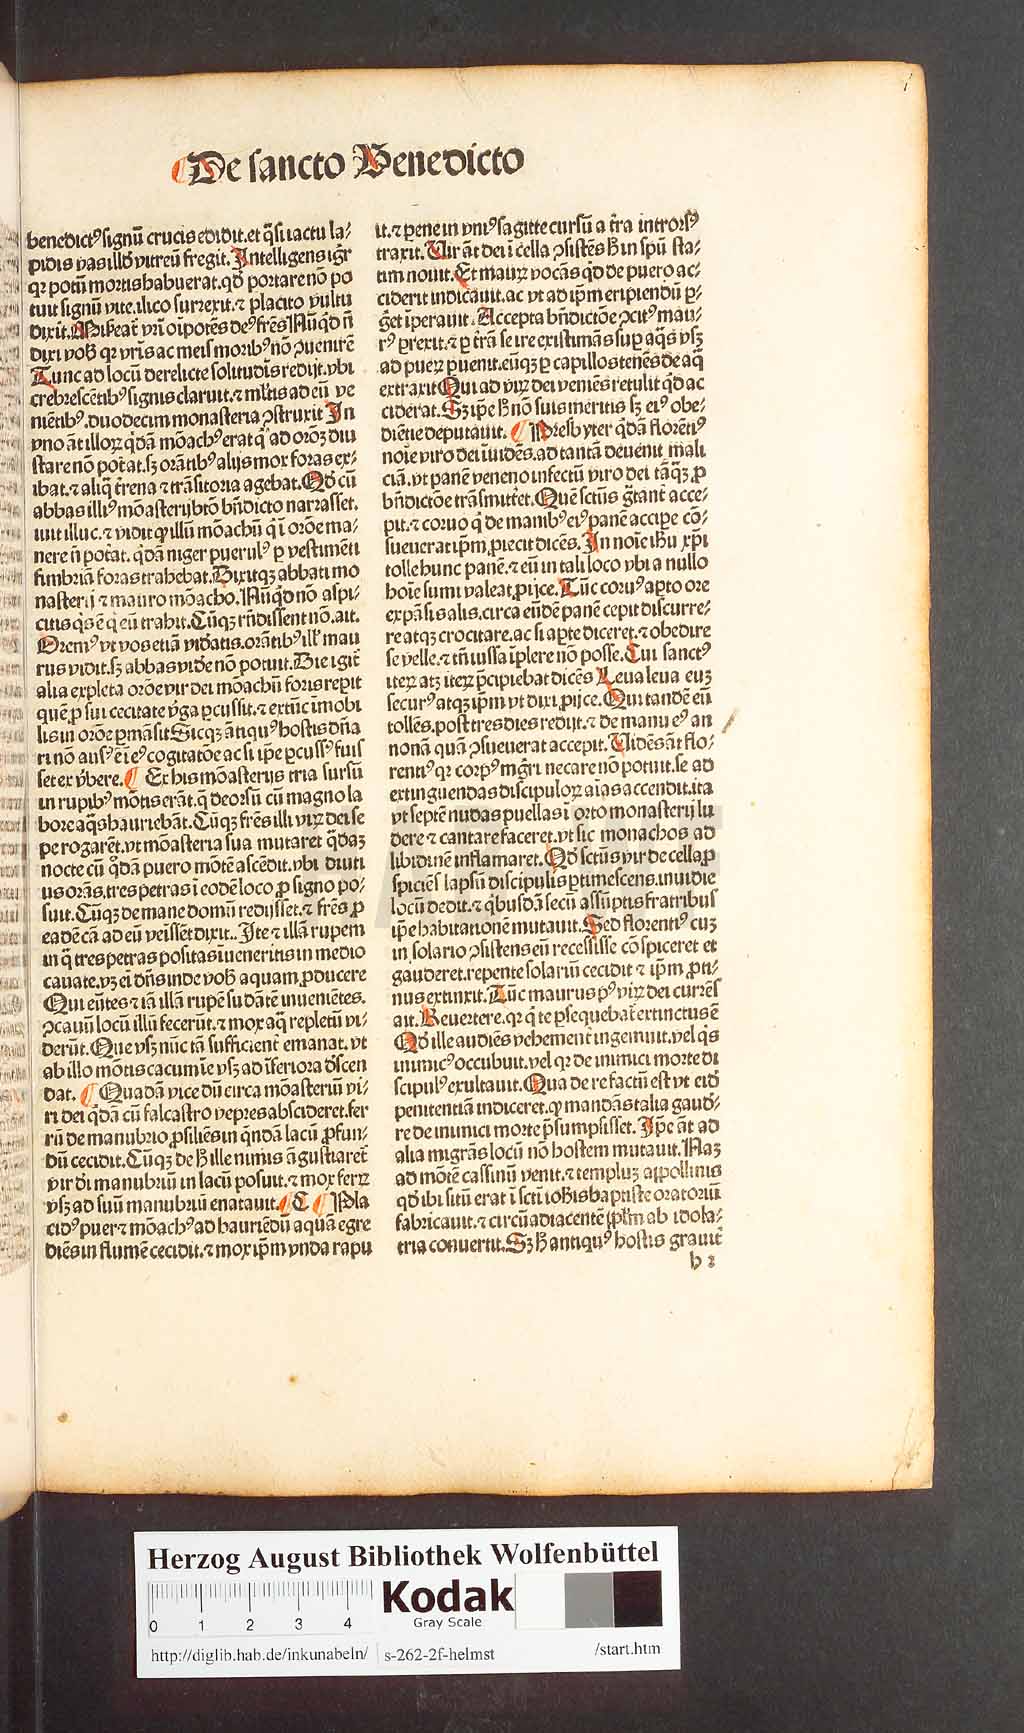 De sancto Benedicto
benedictꝰ signū crucis edidit. et q̄si iactu la⸗
pidis vas illd̓ vitreū fregit. Intelligens igit̄
qꝛ potū mortis habuerat. qd̓ portare nō po
tuit signū vite. ilico surrexit. ⁊ placito vultu
dixit. Misereat̄ vr̄i oīpotēs deꝰ fr̄es Nūqd̓ nō
dixi vob̓ qꝛ vr̄is ac meis moribꝰ nō ꝯuenire
Tunc ad locū derelicte solitudīs redijt. vbi
crebrescētibꝰ signis claruit. ⁊ ml̓tis ad eū ve
niētibꝰ. duodecim monasteria ꝯstruxit In
vno āt illoꝝ qd̓ā mōachꝰ erat q̇ ad orōꝫ diu
stare nō poterat. sꝫ orātibꝰ alijs mox foras ex⸗
ibat. ⁊ aliq̄ t̄rena ⁊ trāsitoria agebat. Qd̓ cū
abbas illiꝰ mōasterij btō bn̄dicto narrasset.
iuit illuc. ⁊ vidit qꝙ illū mōachū q̇ ī orōe ma⸗
nere nō poterat. qd̓ā niger puerulꝰ ꝑ vestimēti
fimbriā foras trahebat. Dixitqꝫ abbati mo
nasterij ⁊ mauro mōacho. Nūqd̓ nō aspi⸗
citis q̇s ē q̇ eū trahit. Cūqꝫ rn̄dissent nō. ait.
Oremꝰ vt vos etiā videatis. orātibꝰ ill̓ mau
rus vidit. sꝫ abbas videre nō potuit. Die igit̄
alia expleta orōe vir dei mōachū foris reperit
quē ꝓ sui cecitate v̓ga ꝑcussit. ⁊ ex tūc imobi
lis in orōe ꝑmāsit Sicqꝫ ātiquꝰ hostis dn̄a
ri nō ausꝰ ē ī eꝰ cogitatōe ac si ip̄e ꝑcussꝰ fuis
set ex v̓bere. ¶ Ex his mōasterijs tria sursū
in rupibꝰ mōtis erāt. q̄ deorsū cū magno la
bore aq̄s hauriebāt. Cūqꝫ fr̄es illi viꝝ dei se
pe rogarēt. vt mōasteria sua mutaret qd̓aꝫ
nocte cū qd̓ā puero mōtē ascēdit. vbi diuti
us orās. tres petras ī eodē loco ꝓ signo po⸗
suit. Cūqꝫ de mane domū redijsset. ⁊ fr̄es ꝓ
eadē cā ad eū veissēt dixit.. Ite ⁊ illā rupem
in q̄ tres petras positas iueneritis in medio
cauate. vꝫ ei dn̄s inde vob̓ aquam ꝓducere
Qui eūtes ⁊ iā illā rupē sudātē inueniētes.
ꝯcauū locū illū fecerūt. ⁊ mox aq̄ repletū vi⸗
derūt. Que vsqꝫ nūc tā sufficient̄ emanat. vt
ab illo mōtis cacumīe vsqꝫ ad īferiora d̓scen
dat. ¶ Quadā vice dū circa mōasteriū vi⸗
ri dei qd̓ā cū falcastro vepres abscideret. fer
rū de manubrio ꝓsiliēs in q̄ndā lacū ꝓfun⸗
dū cecidit. Cūqꝫ de h̓ ille nimis āgustiaret̄
vir d̓i manubriū in lacū posuit. ⁊ mox ferꝝ
vsqꝫ ad suū manubriū enatauit. ¶ C ¶ Pla
cidꝰ puer ⁊ mōachꝰ ad hauriēdū aquā egre
diēs in flumē cecidit. ⁊ mox ip̄m vnda rapu
it. ⁊ pene in vniꝰ sagitte cursū a t̄ra introrsꝰ
traxit. Vir āt dei ī cella ꝯsistēs h̓ in spū sta⸗
tim nouit. Et mauꝝ vocās qd̓ de puero ac⸗
ciderit indicauit. ac vt ad ip̄m eripiendū p̱⸗
geret īperauit. Accepta bn̄dictōe ꝯcitꝰ mau⸗
rꝰ ꝑrexit. ⁊ ꝑ t̄rā se ire existimās suꝑ aq̄s vsqꝫ
ad pueꝝ ꝑuenit. eūqꝫ ꝑ capillos tenēs de aq̄
extraxit Qui ad viꝝ dei veniēs retulit qd̓ ac
ciderat. Sꝫ ip̄e h̓ nō suis meritis sꝫ eiꝰ obe⸗
diētie deputauit. ¶ Presbyter qd̓ā florētiꝰ
noīe viro dei īuidēs. ad tantā deuenit mali
ciā. vt panē veneno infectū viro dei tāqꝫ ꝓ
bn̄dictōe trāsmittet. Quē sctūs gratant̄ acce⸗
pit. ⁊ coruo q̇ de manibꝰ eiꝰ panē accipe cō⸗
sueuerat ip̄m ꝓiecit dicēs. In noīe ihū xp̄i
tolle hunc panē. ⁊ eū in tali loco vbi a nullo
hoīe sumi valeat. ꝓijce. Tūc coruꝰ aꝑto ore
expāsis alis. circa eūdē panē cepit discurre⸗
re atqꝫ crocitare. ac si aꝑte diceret. ⁊ obedire
se velle. ⁊ tn̄ iussa īplere nō posse. Cui sanctꝰ
iteꝝ atqꝫ iteꝝ p̄cipiebat dicēs Leua leua euꝫ
securꝰ atqꝫ ip̄m vt dixi. ꝓijce. Qui tandē eū
tollēs. post tres dies redijt. ⁊ de manu eꝰ an
nonā quā ꝯsueuerat accepit. Vidēs āt flo⸗
rentiꝰ qꝛ corpꝰ mg̓ri necare nō potuit. se ad
extinguendas discipuloꝝ aīas accendit. ita
vt septē nudas puellas ī orto monasterij lu
dere ⁊ cantare faceret. vt sic monachos ad
libidinē inflāmaret. Qd̓ sctūs vir de cella ꝓ
spiciēs lapsū discipulis ꝑtimescens. inuidie
locū dedit. ⁊ quibusdā secū assūptis fratribus
ip̄e habitationē mutauit. Sed florentiꝰ cuꝫ
in solario ꝯsistens eū recessisse cōspiceret et
gauderet. repente solariū cecidit ⁊ ip̄m ꝓti⸗
nus extinxit. Tūc maurus pꝰ viꝝ dei currēs
ait. Reuertere. qꝛ q̇ te ꝑsequebat̄ extinctus ē
Qd̓ ille audiēs vehement̄ ingemuit. vel q̇s
inimicꝰ occubuit. vel qꝛ de inimici morte di
scipulꝰ exultauit. Qua de re factū est vt eid̓
penitentiā indiceret. qꝙ mandās talia gaud̓⸗
re de inimici morte p̄sumpsisset. Ip̄e āt ad
alia migrās locū nō hostem mutauit. Naꝫ
ad mōtē cassinū venit. ⁊ templuꝫ appollinis
qd̓ ibi sitū erat ī scti iohīs baptiste oratoriū
fabricauit. ⁊ circūadiacentē pplm̄ ab idola⸗
tria conuertit. Sꝫ h̓ antiquꝰ hostis grauit̄
b 2
Herzog August Bibliothek Wolfenbüttel
0 1 2 3 4
Kodak
Gray Scale
http://diglib.hab.de/inkunabeln/ s-262-2f-helmst /start.htm